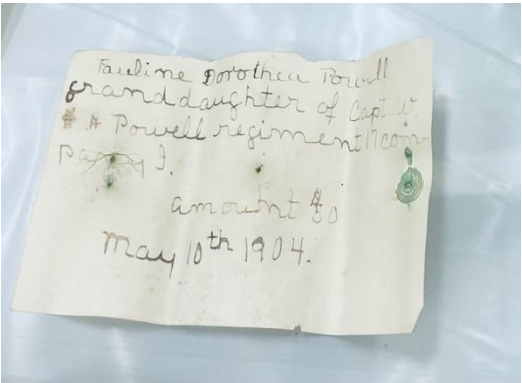 Pauline Dorothea Powell
granddaughter of Capt. W.
# A Powell regiment 17 com-
pany I.
amount $50
May 10th 1904.